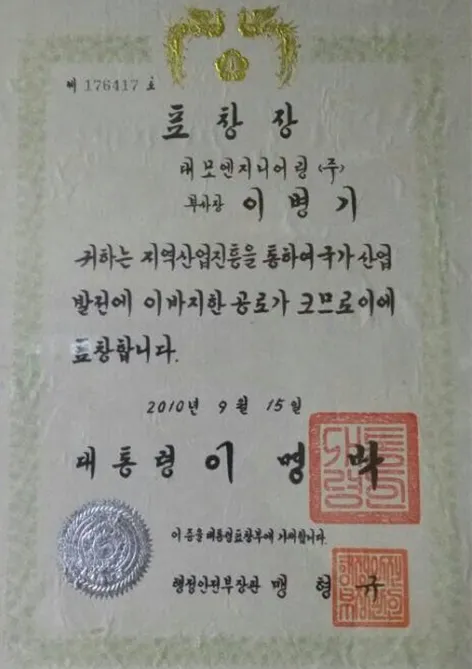 제 176417 호
표 창 장
대모엔지니어링 (주)
부사장 이 병 기
귀하는 지역산업진흥을 통하여 국가 산업
발전에 이바지한 공로가 크므로 이에
표창합니다.
2010년 9 월 15 일
대통령 이 명 박
이 증을 대통령표창부에 기재합니다.
행정안전부장관 맹 형 규